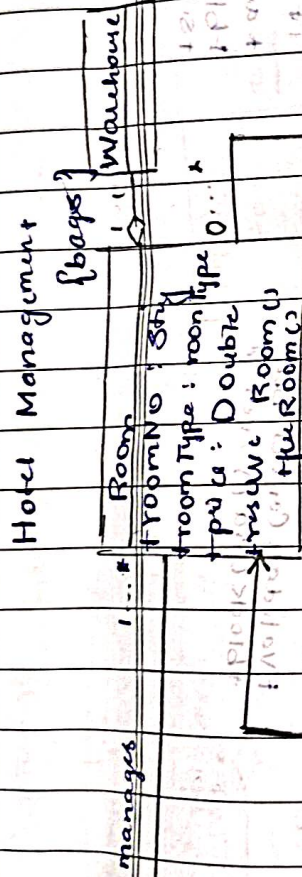 Hotel Management
{bags}
Warehouse
1
1
manages
1...*
Room
+roomNO : Str
+roomType : roomType
+price : Double
+reserve Room()
Room()
0...*